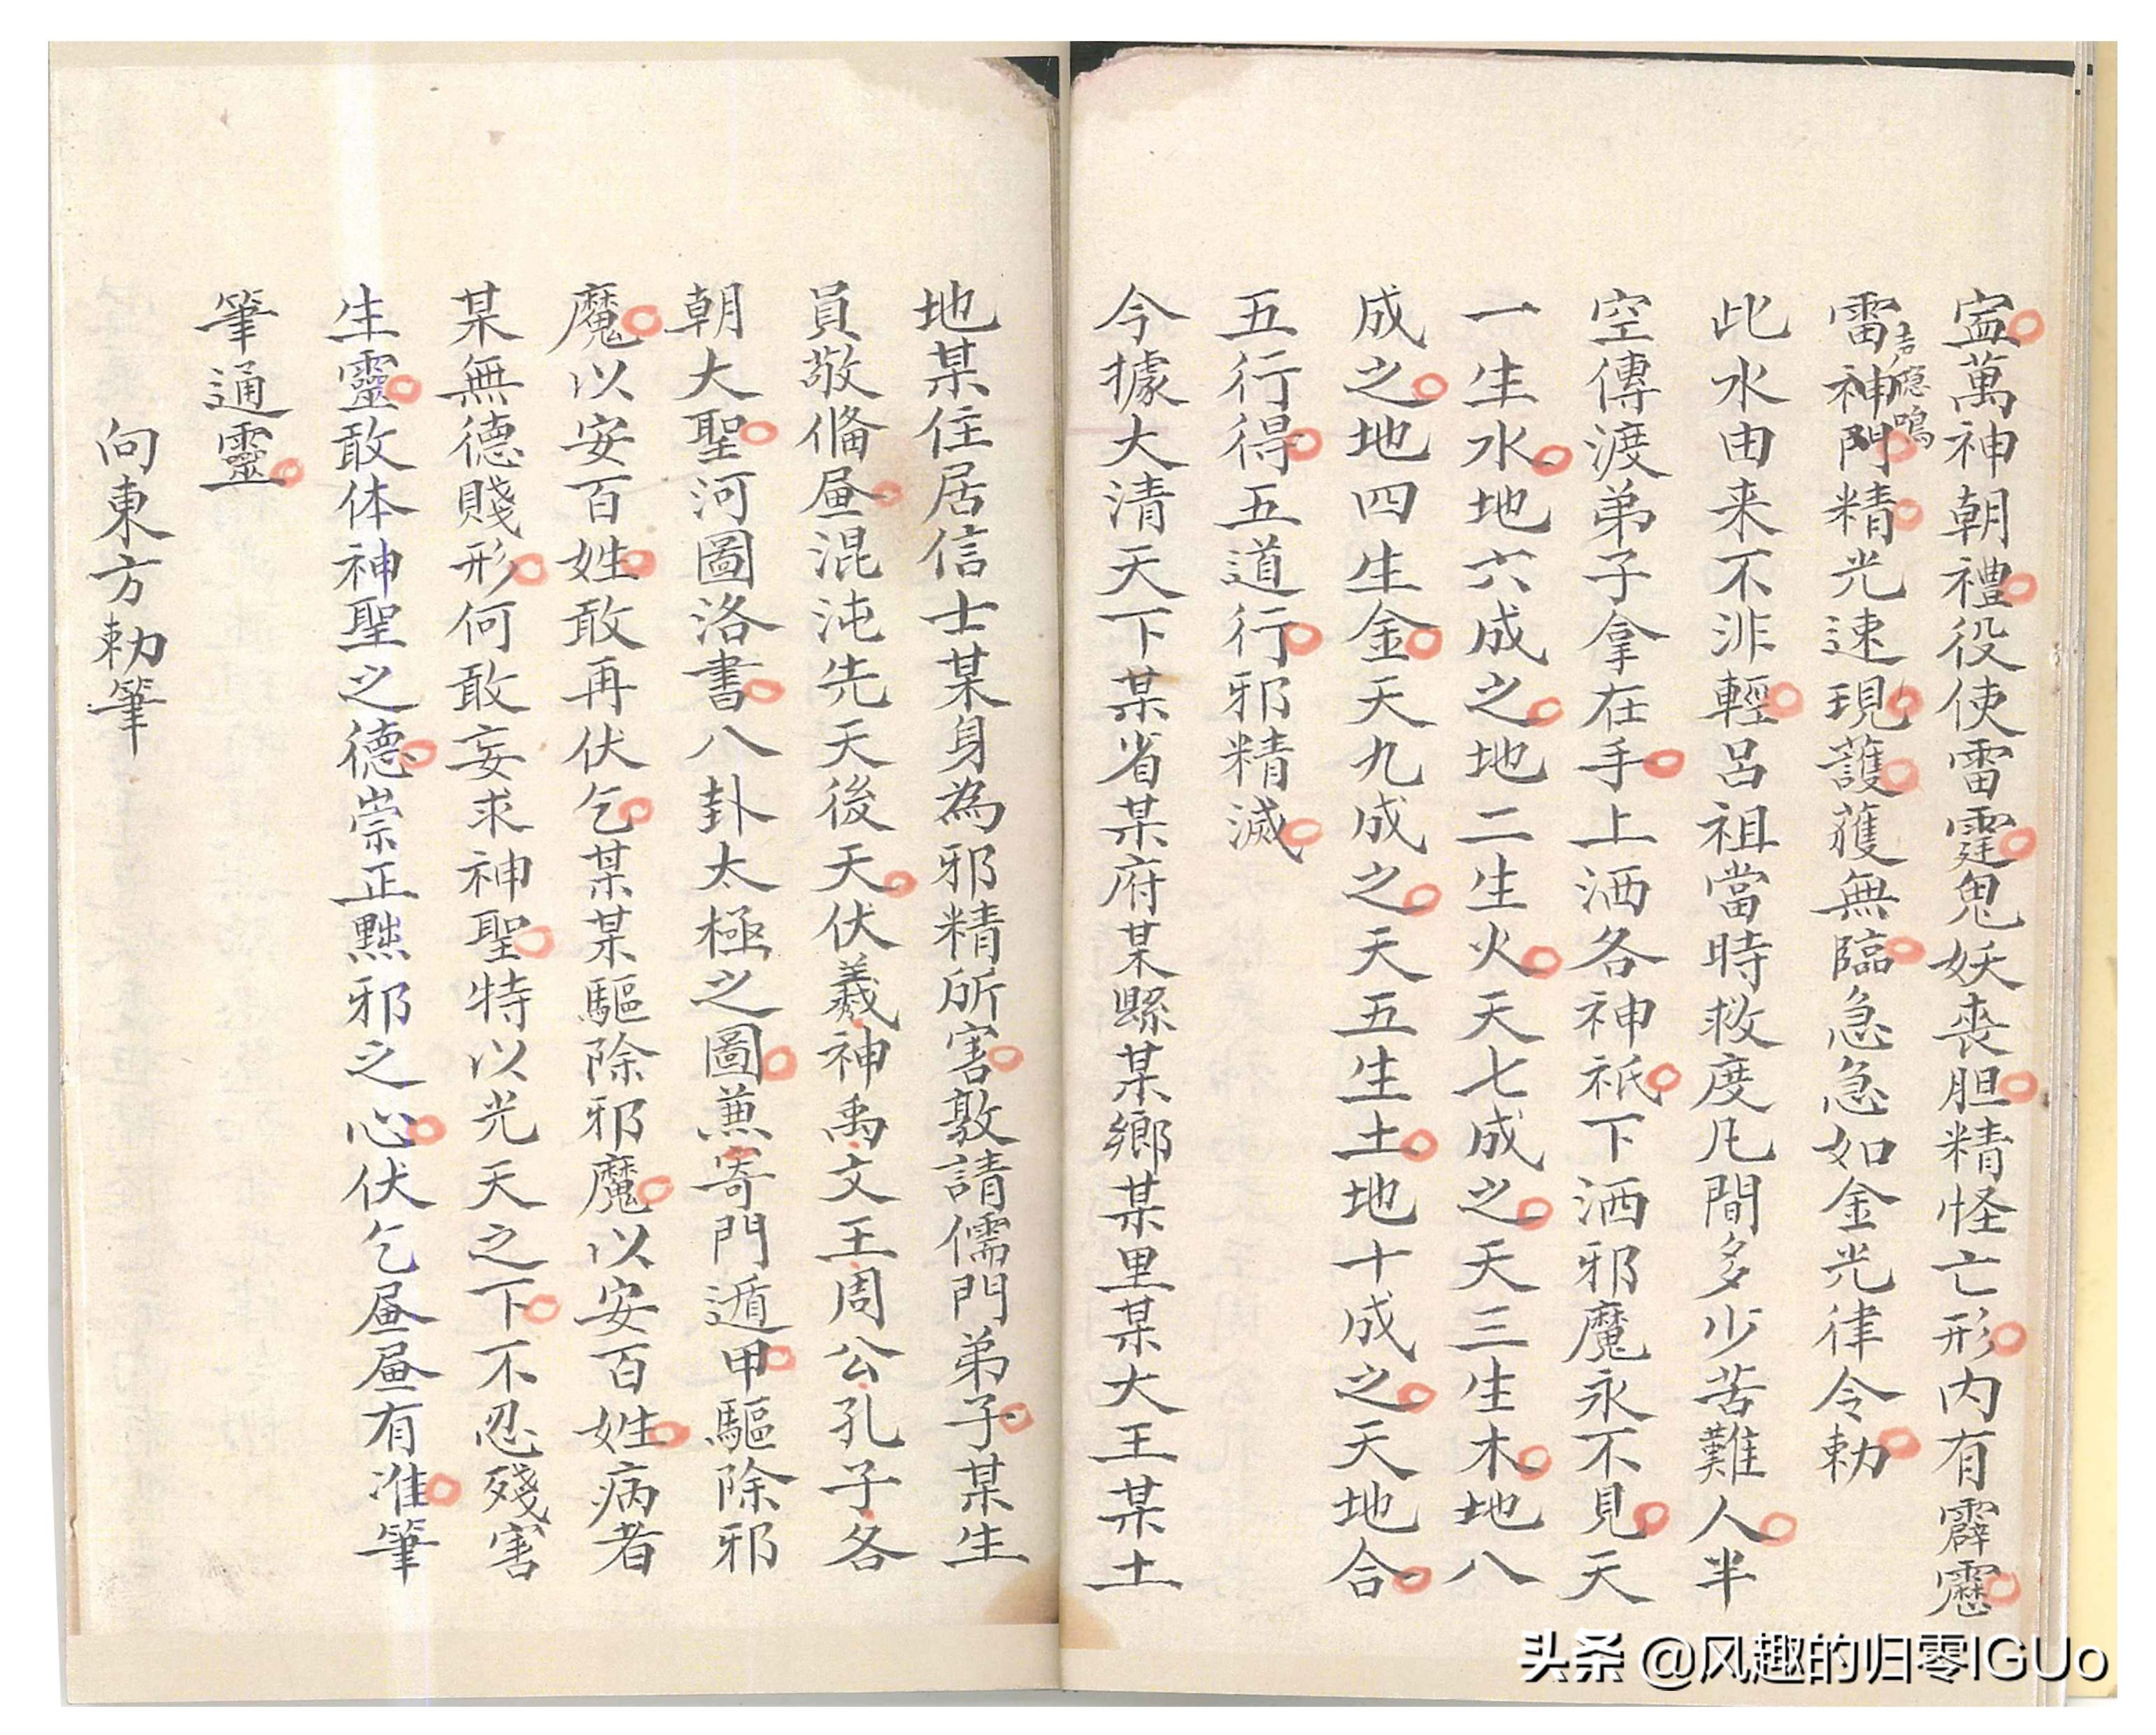 寍萬神朝禮役使雷霆鬼妖丧胆精怪亡形内有霹靂
雷神門精光速現護䕶無臨急急如金光律令勅
吉應鳴
此水由来不非輕呂祖當時救度凡間多少苦難人半
空傳渡弟子拿在手上洒各神祇下洒邪魔永不見天
一生水地六成之地二生火天七成之天三生木地八
成之地四生金天九成之天五生土地十成之天地合
五行得五道行邪精滅
今據大清天下某省某府某縣某鄉某里某大王某土
地某住居信士某身為邪精所害敦請儒門弟子某生
員敬偹昼混沌先天後天伏羲神禹文王周公孔子各
朝大聖河圖洛書八卦太極之圖蕙寄門遁甲驅除邪
魔以安百姓敢再伏乞某某驅除邪魔以安百姓病者
某無德賤形何敢妄求神聖特以光天之下不忍殘害
生靈敢体神聖之德崇正黜邪之心伏乞昼昼有准筆
筆通靈
向東方勅筆
头条 @风趣的归零IGUo